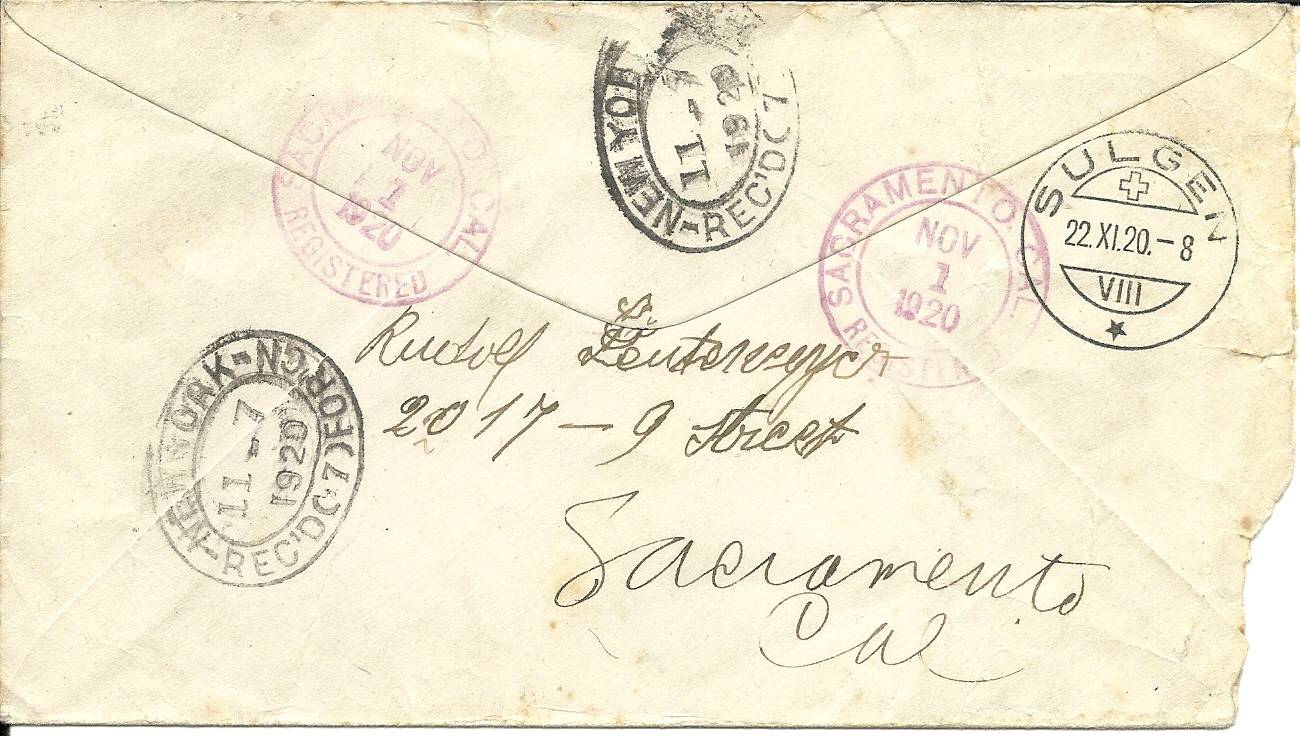 SACRAMENTO, CAL.
NOV
1
1920
REGISTERED
NEW YO
11-7
1920
REC'D C 7
SACRAMENTO, CAL.
NOV
1
1920
REGISTERED
SULGEN
22.XI.20.-8
VIII
NEW YORK-N-REC'D C 7 (FOR'GN
11-7
1920
Rudolf
2017-9 Street
Sacramento
Cal